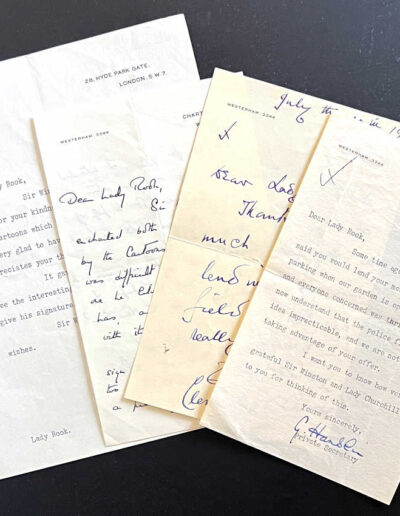 28, HYDE PARK GATE,
LONDON, S.W.7.
Lady Rook,
Sir Win
for your kindn
cartoons which
very glad to have
preciates your th
It g
see the interesting
give his signature
Sir W
wishes.
Lady Rook.
WESTERHAM 3344
CHART
W
Dear Lady Rook,
Sir
enchanted both
by the Cartoons
was difficult
has a
with it
sign
too
a
WESTERHAM 3344
July
x
Dear Lady
Thank
much
lend
field
really
Cle
WESTERHAM 3344
x
Dear Lady Rook,
Some time ago
said you would lend your
parking when our garden is open
and everyone concerned was thr
now understand that the police f
idea impracticable, and we are not
taking advantage of your offer.
I want you to know how ver
grateful Sir Winston and Lady Churchill
to you for thinking of this.
Yours sincerely,
Private Secretary